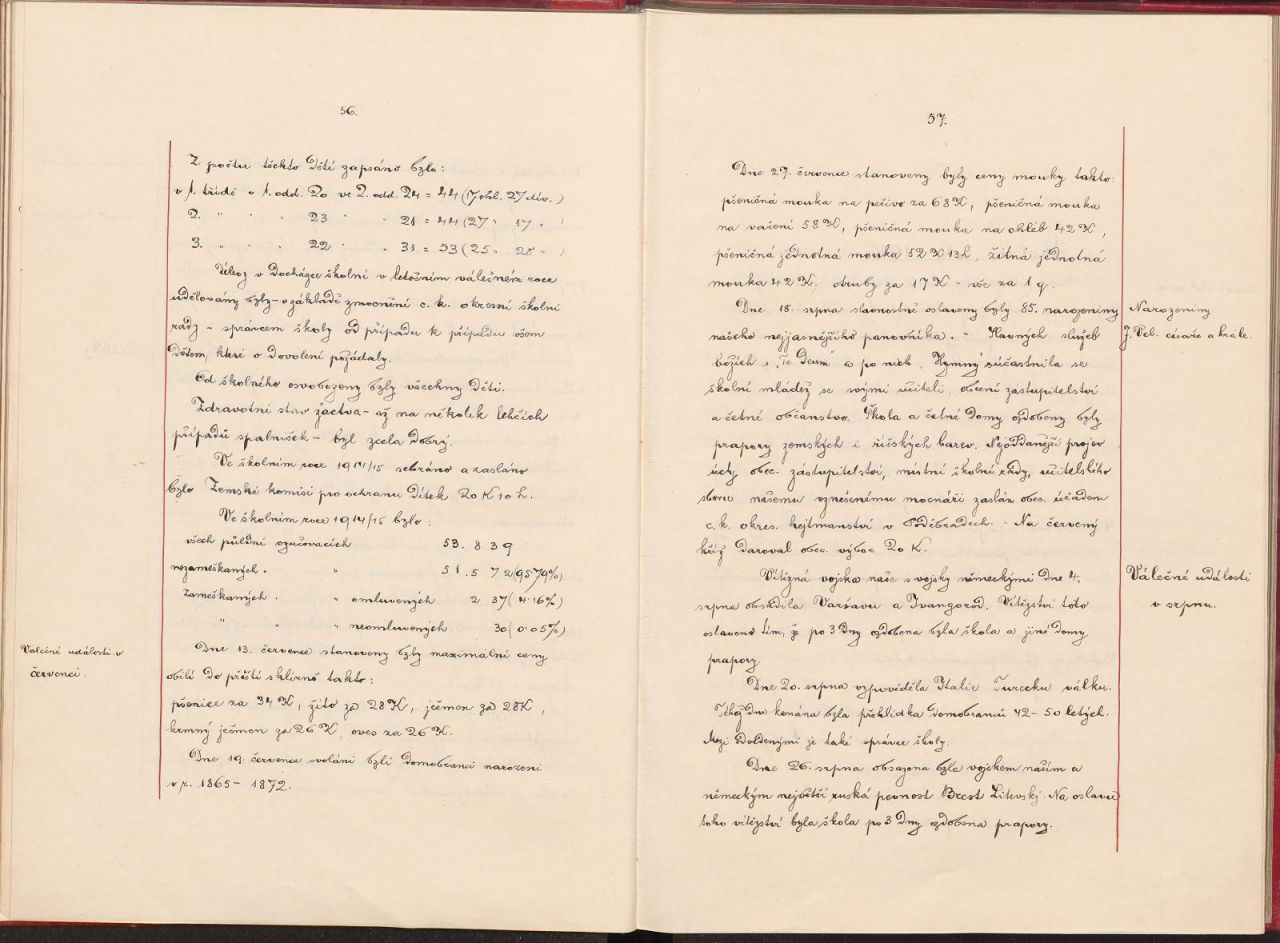 56.
Z počtu těchto dětí zapsáno bylo:
v 1. třídě v 1. odd. 20 ve 2. odd. 24 = 44 (17 chl. 27 dív.)
2. " " " 23 " " 21 = 44 (27 " 17 " )
3. " " " 22 " " 31 = 53 (25 " 28 " )
Úlevy v docházce školní v letošním válečném roce
udělovány byly – v základě zmocnění c. k. okresní školní
rady – správcem školy od případu k případu všem
dětem, které o dovolení požádaly.
Od školného osvobozeny byly všechny děti.
Zdravotní stav žactva – až na několik lehčích
případů spalniček – byl zcela dobrý.
Ve školním roce 1914/15 sebráno a zasláno
bylo Zemské komisi pro ochranu dítek 20 K 10 h.
Ve školním roce 1914/15 bylo:
všech půldní vyučovacích 53.839
nezameškaných " " 51.572 (95.79%)
zameškaných " " omluvených 2 237 (4.16%)
" " " neomluvených 30 (0.05%)
Válečné události v
červenci.
Dne 13. července stanoveny byly maximalní ceny
obilí do příští sklizně takto:
pšenice za 34 K, žito za 28 K, ječmen za 28 K,
krmný ječmen za 26 K, oves za 26 K.
Dne 19. července svoláni byli domobranci narození
v r. 1865 – 1872.
57.
Dne 27. července stanoveny byly ceny mouky takto:
pšeničná mouka na pečivo za 68 K, pšeničná mouka
na vaření 58 K, pšeničná mouka na chléb 42 K,
pšeničná jednotná mouka 52 K 13 h, žitná jednotná
mouka 42 K, otruby za 17 K – vše za 1 q.
Narozeniny
J. Vel. císaře a krále.
Dne 18. srpna slavnostně oslaveny byly 85. narozeniny
našeho nejjasnějšího panovníka. – Slavných služeb
božích s „Te Deum" a po nich „Hymny" súčastnila se
školní mládež se svými učiteli, obecní zastupitelství
a četné občanstvo. Škola a četné domy ozdobeny byly
prapory zemských i říšských barev. Nejoddanější projev
úcty obec. zástupitelství, místní školní rady, učitelského
sboru našemu vznešenému mocnáři zaslán obec. úřadem
c. k. okres. hejtmanství v Poděbradech. – Na červený
kříž daroval obec. výbor 20 K.
Válečné události
v srpnu.
Vítězná vojska naše s vojsky německými dne 4.
srpna obsadila Varšavu a Ivangorod. Vítězství toto
oslaveno tím, že po 3 dny ozdobena byla škola a jiné domy
prapory
Dne 20. srpna vypověděla Italie Turecku válku.
Téhož dne konána byla přehlídka domobranců 42 – 50 letých.
Mezi odvedenými je také správce školy.
Dne 26. srpna obsazena byla vojskem naším a
německým největší ruská pevnost Brest Litevský. Na oslavu
toho vítězství byla škola po 3 dny ozdobena prapory.